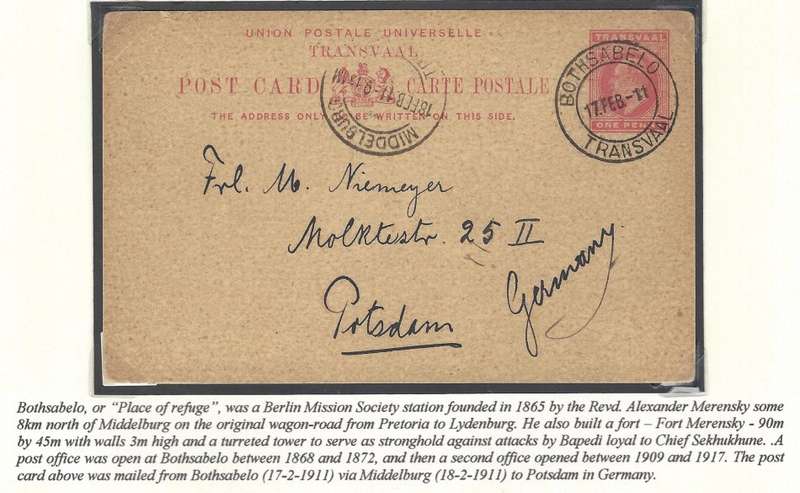 UNION POSTALE UNIVERSELLE
TRANSVAAL
POST CARD CARTE POSTALE
THE ADDRESS ONLY BE WRITTEN ON THIS SIDE.
TRANSVAAL
ONE PENNY
BOTHSABELO
17.FEB-11
TRANSVAAL
MIDDELBURG
18 FEB 11
Frl. M. Niemeyer
Molktestr. 25 II
Potsdam
Germany.
Bothsabelo, or “Place of refuge”, was a Berlin Mission Society station founded in 1865 by the Revd. Alexander Merensky some
8km north of Middelburg on the original wagon-road from Pretoria to Lydenburg. He also built a fort – Fort Merensky - 90m
by 45m with walls 3m high and a turreted tower to serve as stronghold against attacks by Bapedi loyal to Chief Sekhukhune. .A
post office was open at Bothsabelo between 1868 and 1872, and then a second office opened between 1909 and 1917. The post
card above was mailed from Bothsabelo (17-2-1911) via Middelburg (18-2-1911) to Potsdam in Germany.